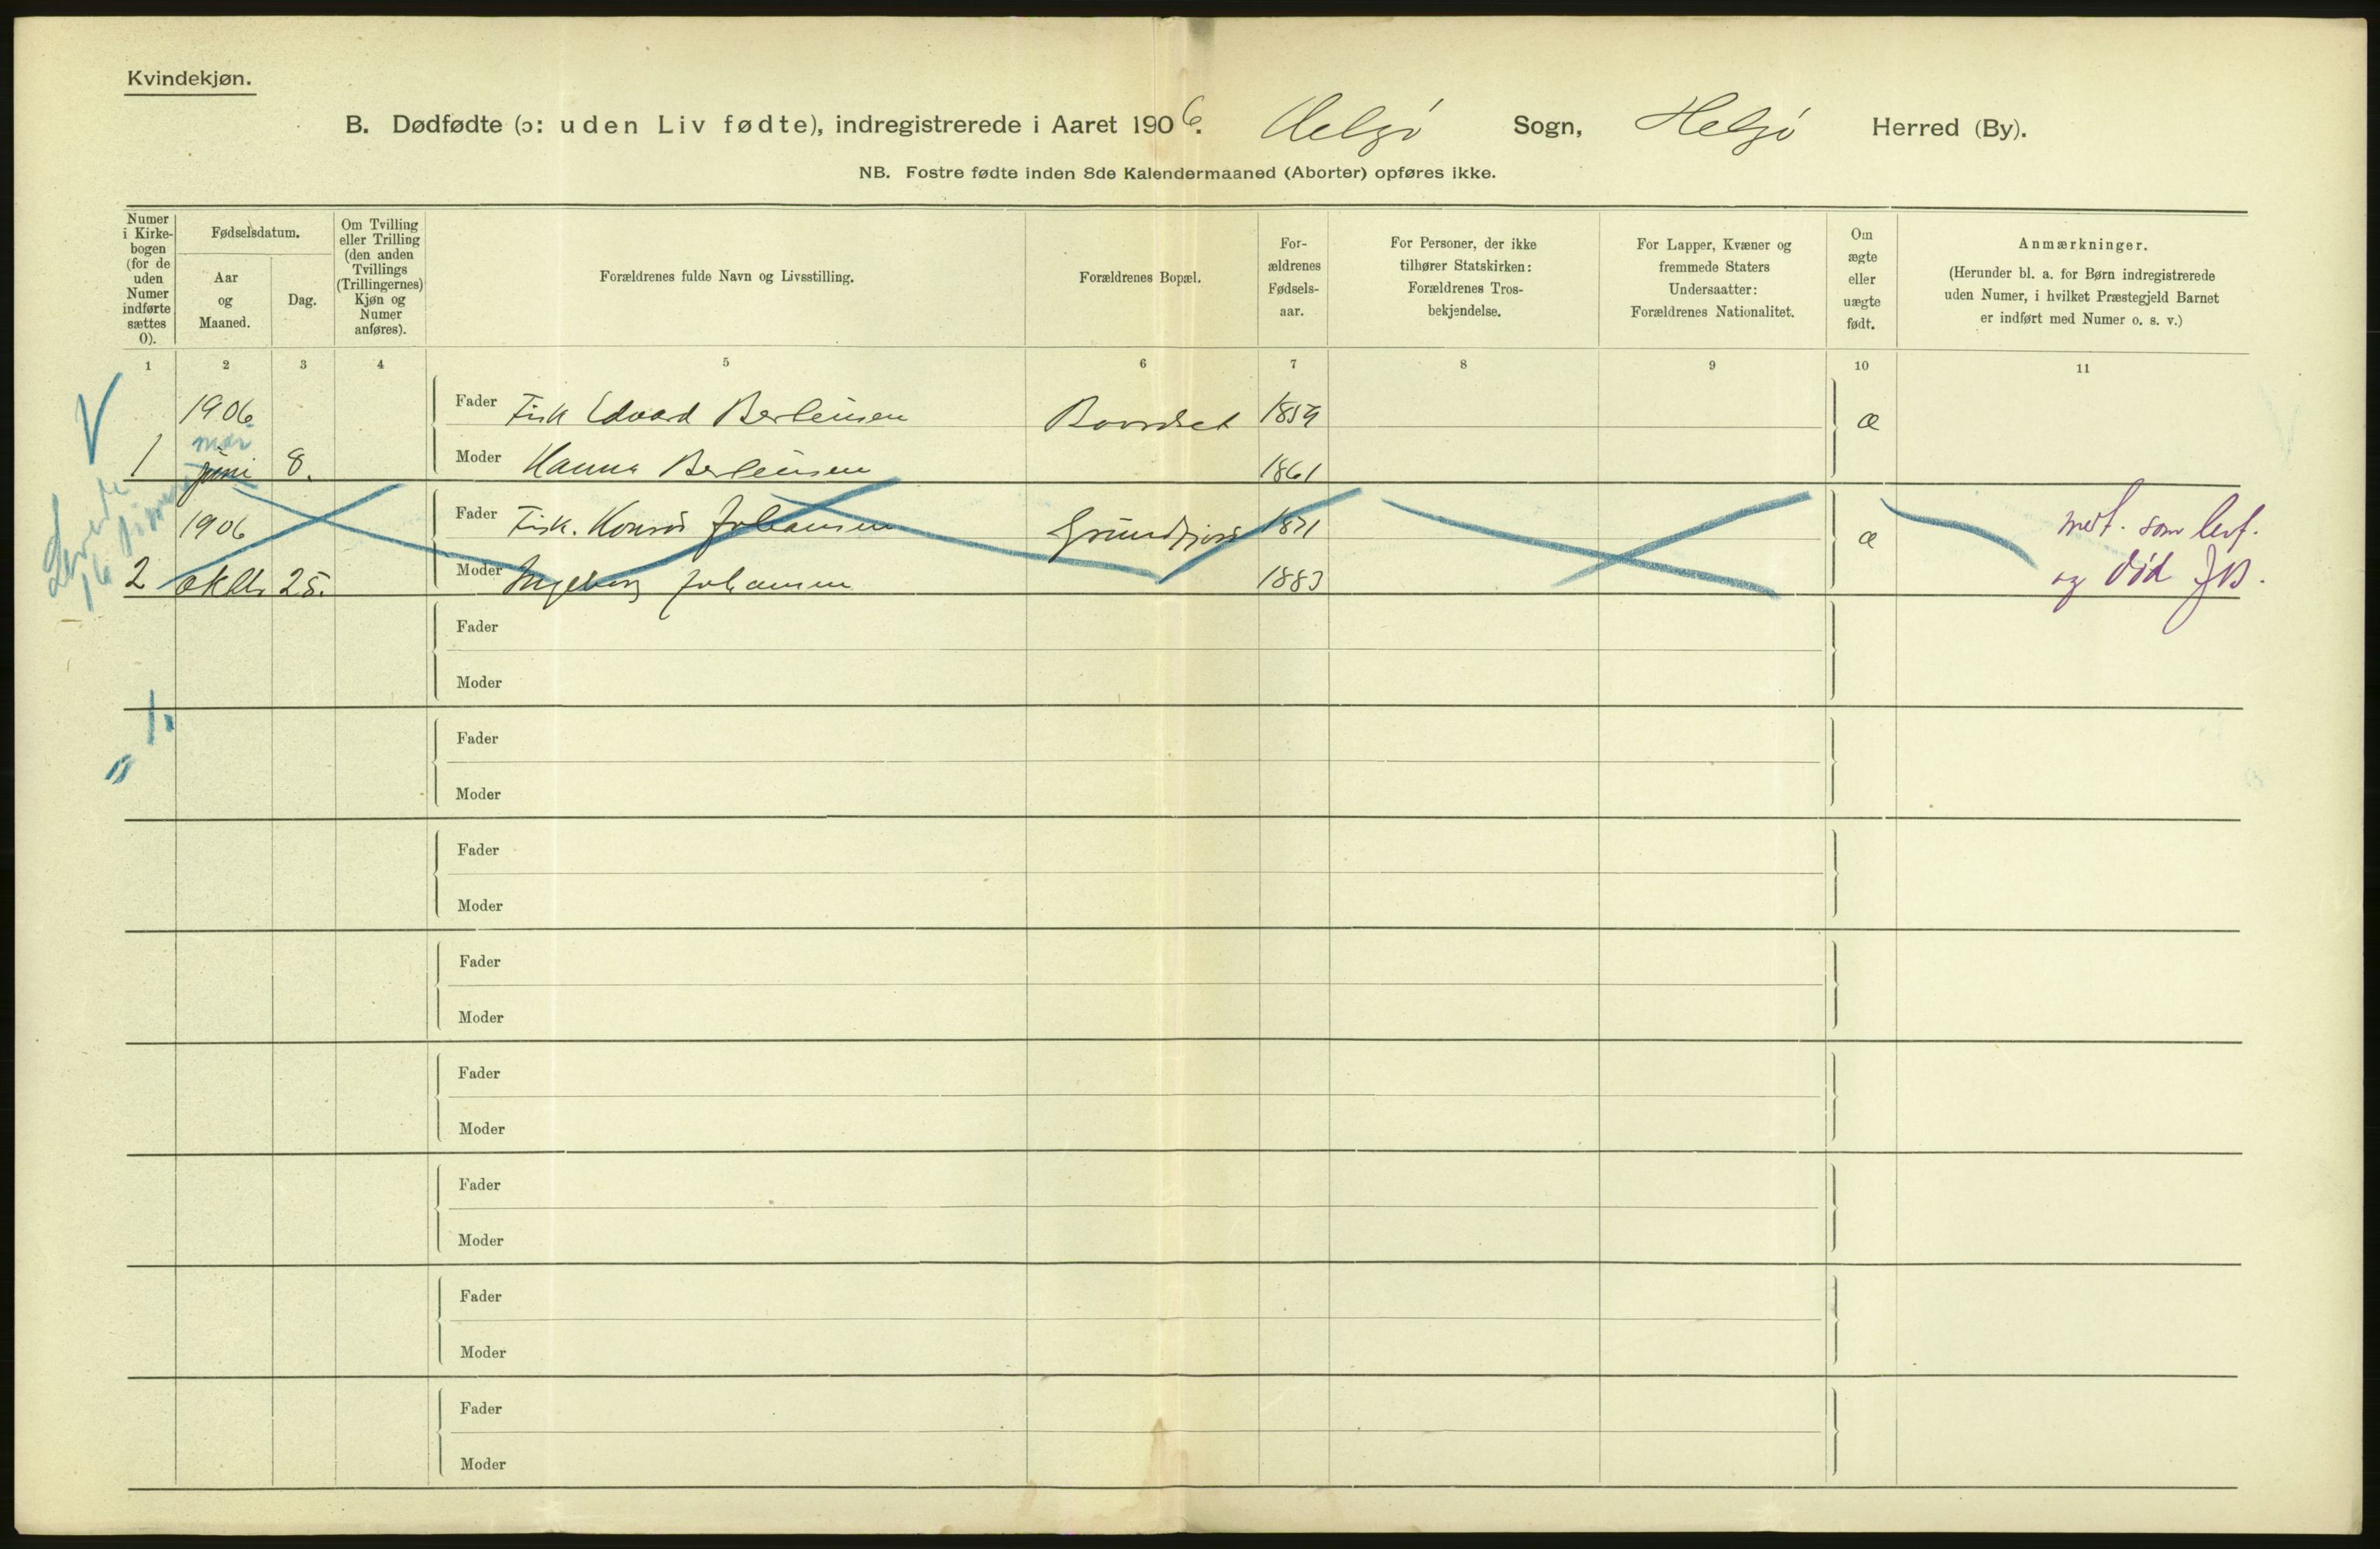 Kvindekjøn.
B. Dødfødte (ɔ: uden Liv fødte), indregistrerede i Aaret 1906. Helgø Sogn, Helgø Herred (By).
NB. Fostre fødte inden 8de Kalendermaaned (Aborter) opføres ikke.
Numer i Kirke-bogen (for de uden Numer indførte sættes 0).
Fødselsdatum.
Aar og Maaned.
Dag.
Om Tvilling eller Trilling (den anden Tvillings (Trillingernes) Kjøn og Numer anføres).
Forældrenes fulde Navn og Livsstilling.
Forældrenes Bopæl.
For-ældrenes Fødsels-aar.
For Personer, der ikke tilhører Statskirken: Forældrenes Tros-bekjendelse.
For Lapper, Kvæner og fremmede Staters Undersaatter: Forældrenes Nationalitet.
Om ægte eller uægte født.
Anmærkninger.
(Herunder bl. a. for Børn indregistrerede uden Numer, i hvilket Præstegjeld Barnet er indført med Numer o. s. v.)
1 2 3 4 5 6 7 8 9 10 11
1906 Fader Fisk Edvard Berteusen 1859 æ
mar
1 juni 8. Moder Hanna Berteusen 1861
1906 Fader Fisk. Konrad Johansen Grundfjord 1871 æ medt. som levf.
2 oktbr 25. Moder Ingeborg Johansen 1883 og død JB.
Fader
Moder
Fader
Moder
Fader
Moder
Fader
Moder
Fader
Moder
Fader
Moder
Fader
Moder
Fader
Moder